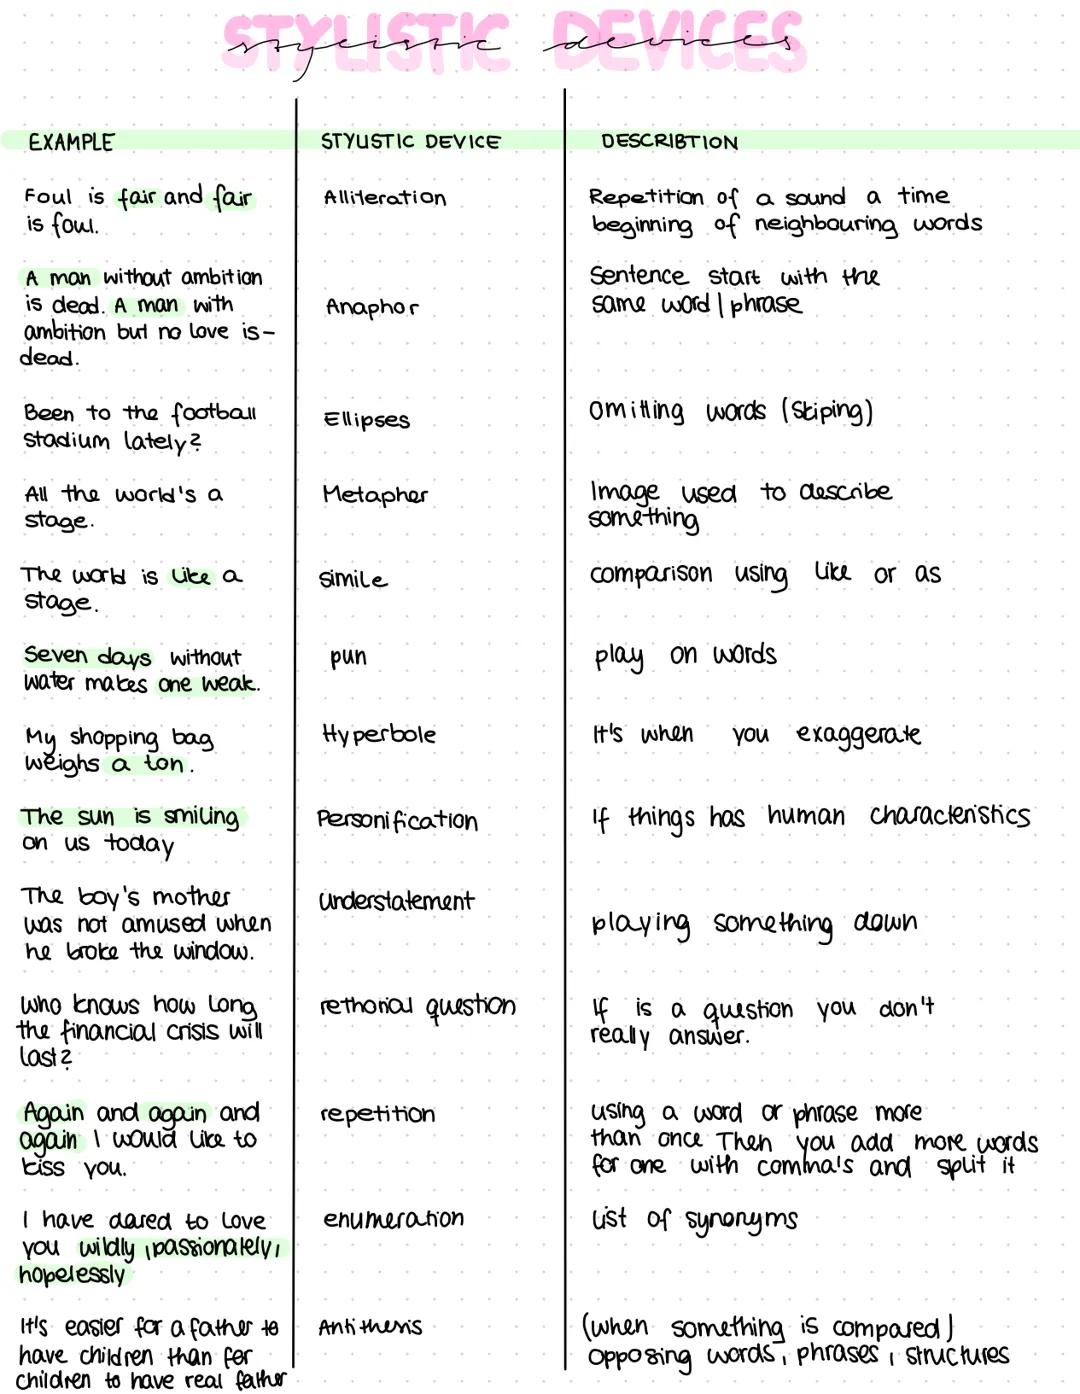 STYLISTIC DEVICES
stylistic devices
EXAMPLE
STYLISTIC DEVICE
DESCRIBTION
Foul is fair and fair
is foul.
Alliteration
Repetition of a sound a time
beginning of neighbouring words
A man without ambition
is dead. A man with
ambition but no love is-
dead.
Anaphor
Sentence start with the
same word/phrase
Been to the football
stadium lately?
Ellipses
Omitting words (Skiping)
All the world's a
stage.
Metapher
Image used to describe
something
The world is like a
stage.
simile
comparison using like or as
Seven days without
water makes one weak.
pun
play on words
My shopping bag
weighs a ton.
Hyperbole
It's when you exaggerate
The sun is smiling
on us today
Personification
If things has human characteristics
The boy's mother
was not amused when
he broke the window.
understatement
playing something down
Who knows how long
the financial crisis will
last?
rethorial question
If is a question you don't
really answer.
Again and again and
again I would like to
kiss you.
repetition
using a word or phrase more
than once Then you add more words
for one with comma's and split it
I have dared to love
you wildly, passionately,
hopelessly
enumeration
List of synonyms
It's easier for a father to
have children than for
children to have real father
Antithesis
(when something is compared)
opposing words, phrases, structures